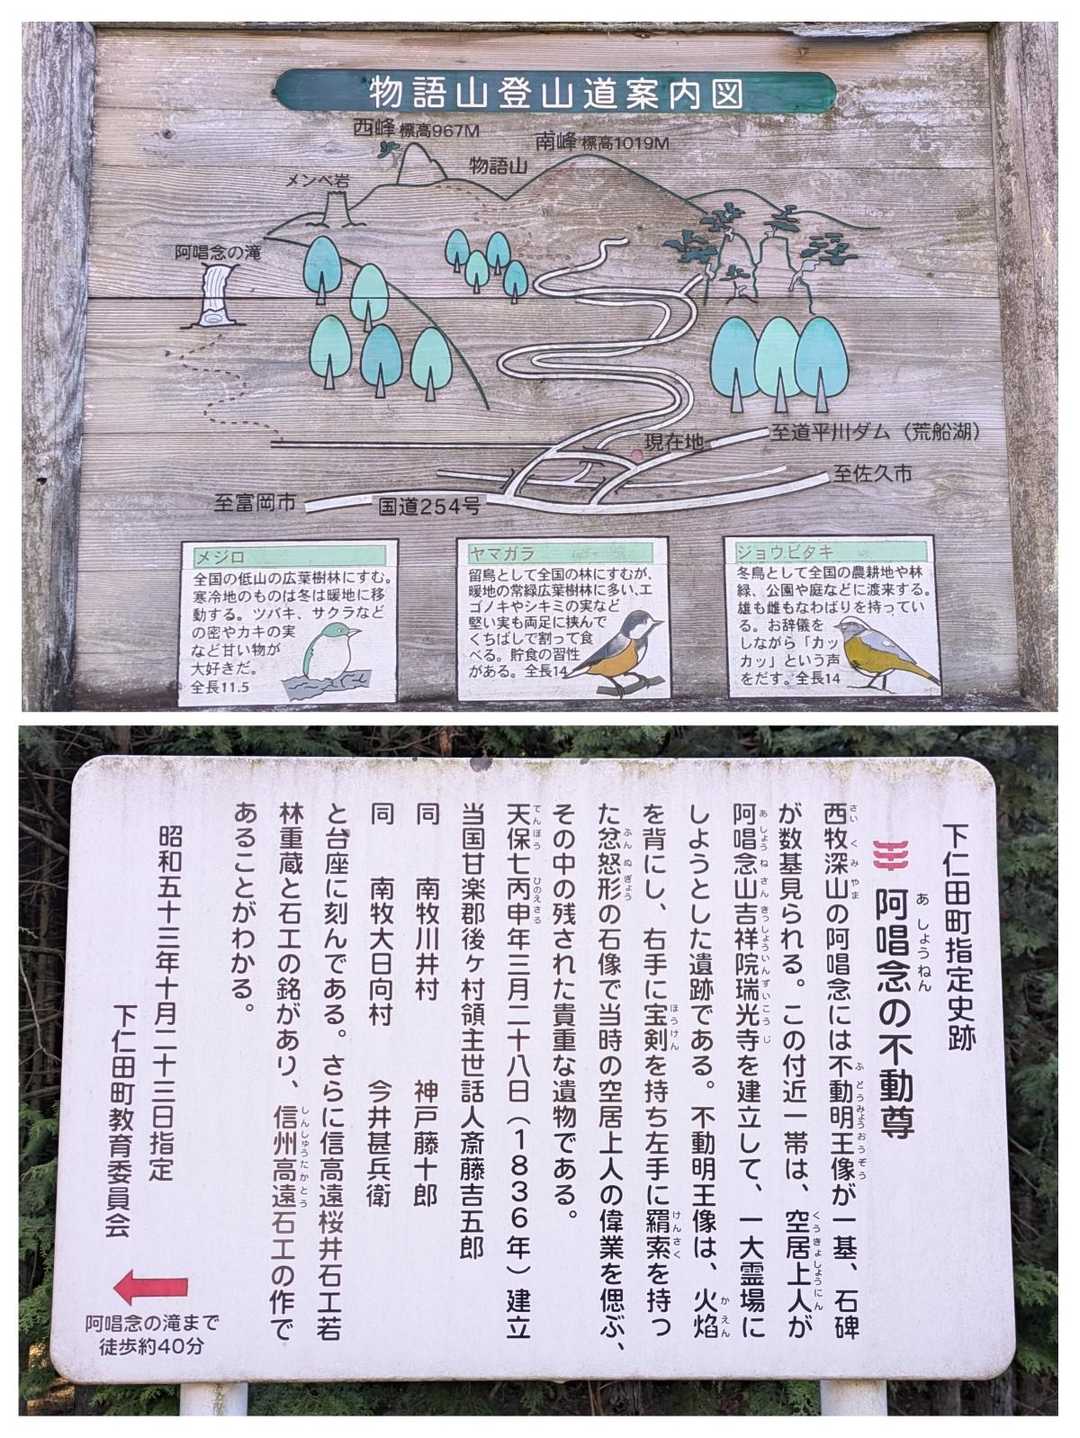 物語山登山道案内図
西峰 標高967M
南峰 標高1019M
物語山
メンベ岩
阿唱念の滝
現在地
至道平川ダム（荒船湖）
至佐久市
至富岡市
国道254号
メジロ
全国の低山の広葉樹林にすむ。
寒冷地のものは冬は暖地に移
動する。ツバキ、サクラなど
の密やカキの実
など甘い物が
大好きだ。
全長11.5
ヤマガラ
留鳥として全国の林にすむが、
暖地の常緑広葉樹林に多い、エ
ゴノキやシキミの実など
堅い実も両足に挟んで
くちばしで割って食
べる。貯食の習性
がある。全長14
ジョウビタキ
冬鳥として全国の農耕地や林
緑、公園や庭などに渡来する。
雄も雌もなわばりを持ってい
る。お辞儀を
しながら「カッ
カッ」という声
をだす。全長14
下仁田町指定史跡
阿唱念の不動尊
あしょうねん
西牧深山の阿唱念には不動明王像が一基、石碑
さいくみやま ふどうみょうおうぞう
が数基見られる。この付近一帯は、空居上人が
くうきょしょうにん
阿唱念山吉祥院瑞光寺を建立して、一大霊場に
あしょうねさんきっしょういんずいこうじ
しようとした遺跡である。不動明王像は、火焰
かえん
を背にし、右手に宝剣を持ち左手に羂索を持っ
ほうけん けんさく
た忿怒形の石像で当時の空居上人の偉業を偲ぶ、
ふんぬぎょう
その中の残された貴重な遺物である。
天保七丙申年三月二十八日（1836年）建立
てんぽう ひのえさる
当国甘楽郡後ヶ村領主世話人斎藤吉五郎
同 南牧川井村 神戸藤十郎
同 南牧大日向村 今井甚兵衛
と台座に刻んである。さらに信高遠桜井石工若
林重蔵と石工の銘があり、信州高遠石工の作で
しんしゅうたかとう
あることがわかる。
昭和五十三年十月二十三日指定
下仁田町教育委員会
阿唱念の滝まで
徒歩約40分